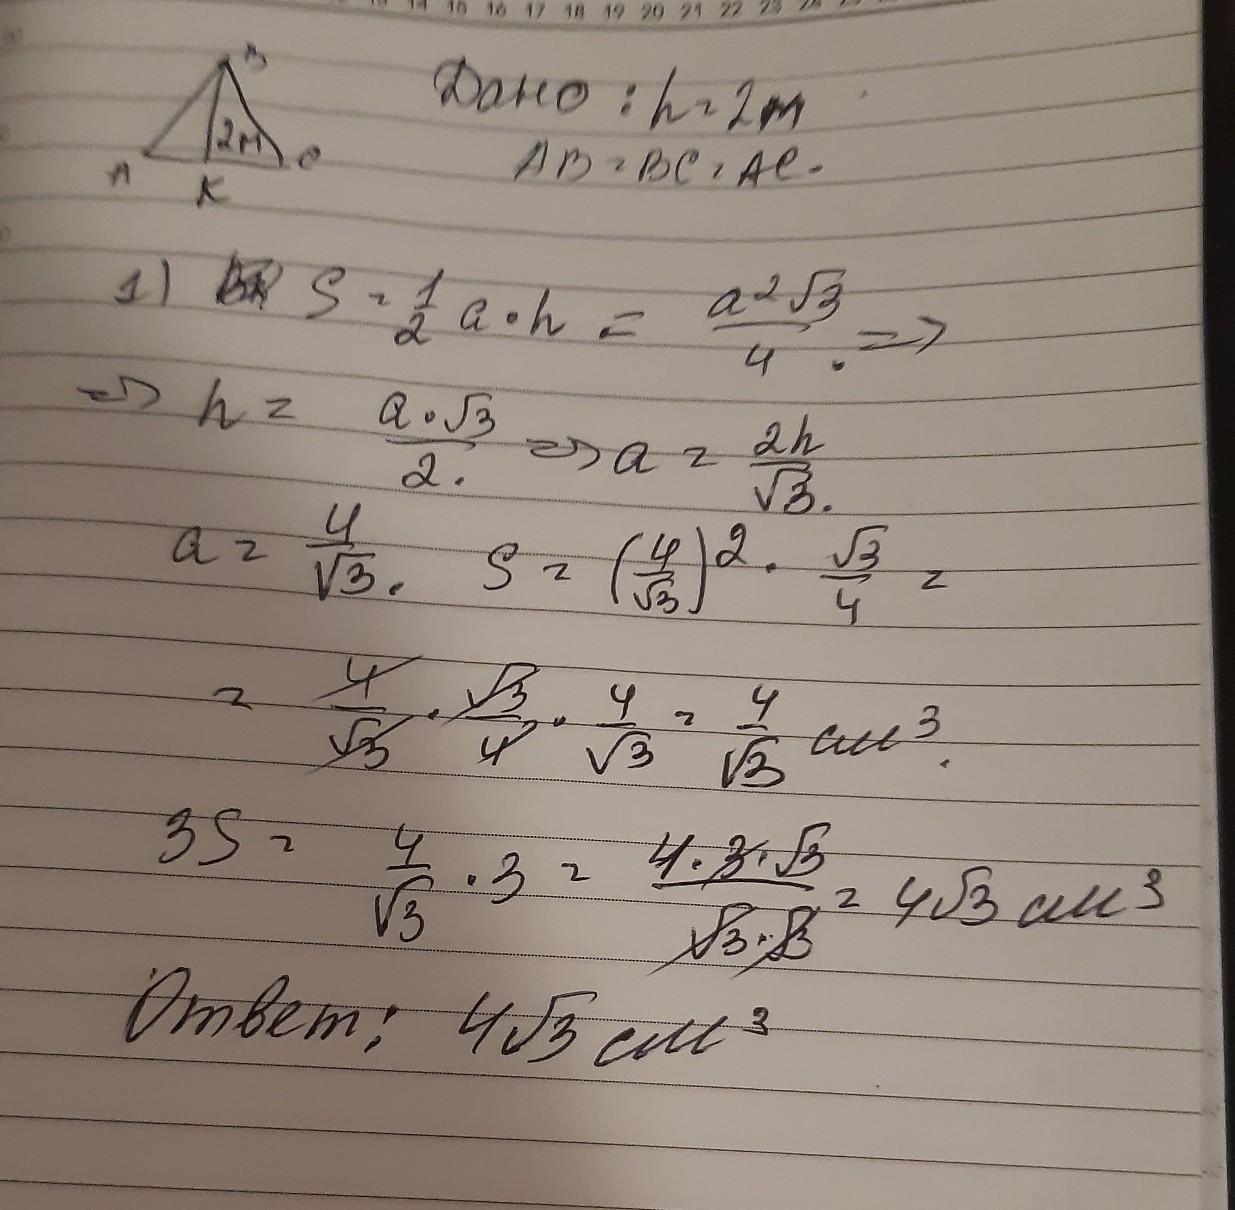 15 16 17 18 19 20 21 22 23
B
2м
A
K
C
Дано : h = 2м
AB = BC = AC.
1) S = 1/2 a · h = a²√3/4 . =>
=> h = a·√3/2. => a = 2h/√3.
a = 4/√3. S = (4/√3)² · √3/4 =
= 4/√3 · √3/4 · 4/√3 = 4/√3 см³.
3S = 4/√3 · 3 = 4·3·√3/√3·√3 = 4√3 см³
Ответ: 4√3 см³